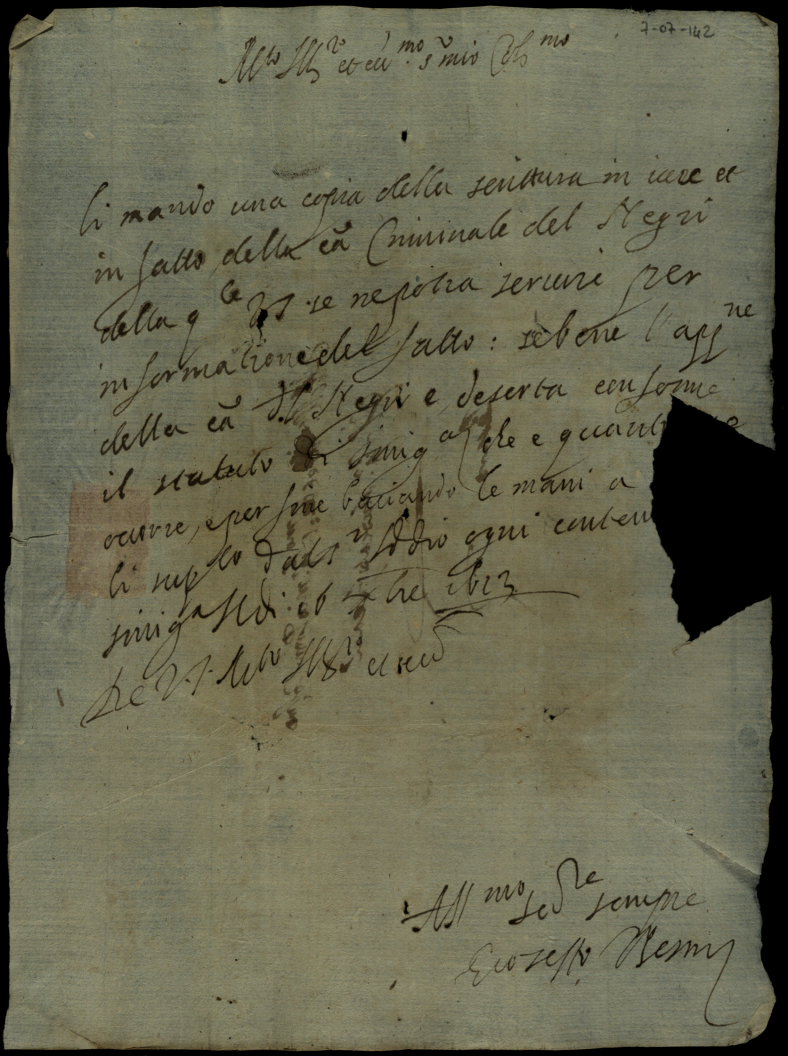 7-07-142
Mto Illre et ecc mo sr mio Colmo
li mando una copia della scrittura in iure et
in fatto della cā Criminale del Negri
della q le VS se ne potra servire per
informatione del fatto: se bene l'app ne
della cā d l Negri e deserta conforme
il statuto di Sinig a che e quanto
occorre, e per fine baciando le mani a
li suplo dal sr Iddio ogni conten
sinig a li di 26 xbre 1623
De V.S. Mto Illre et ecc
Aff mo se re sempre
Gioseffo